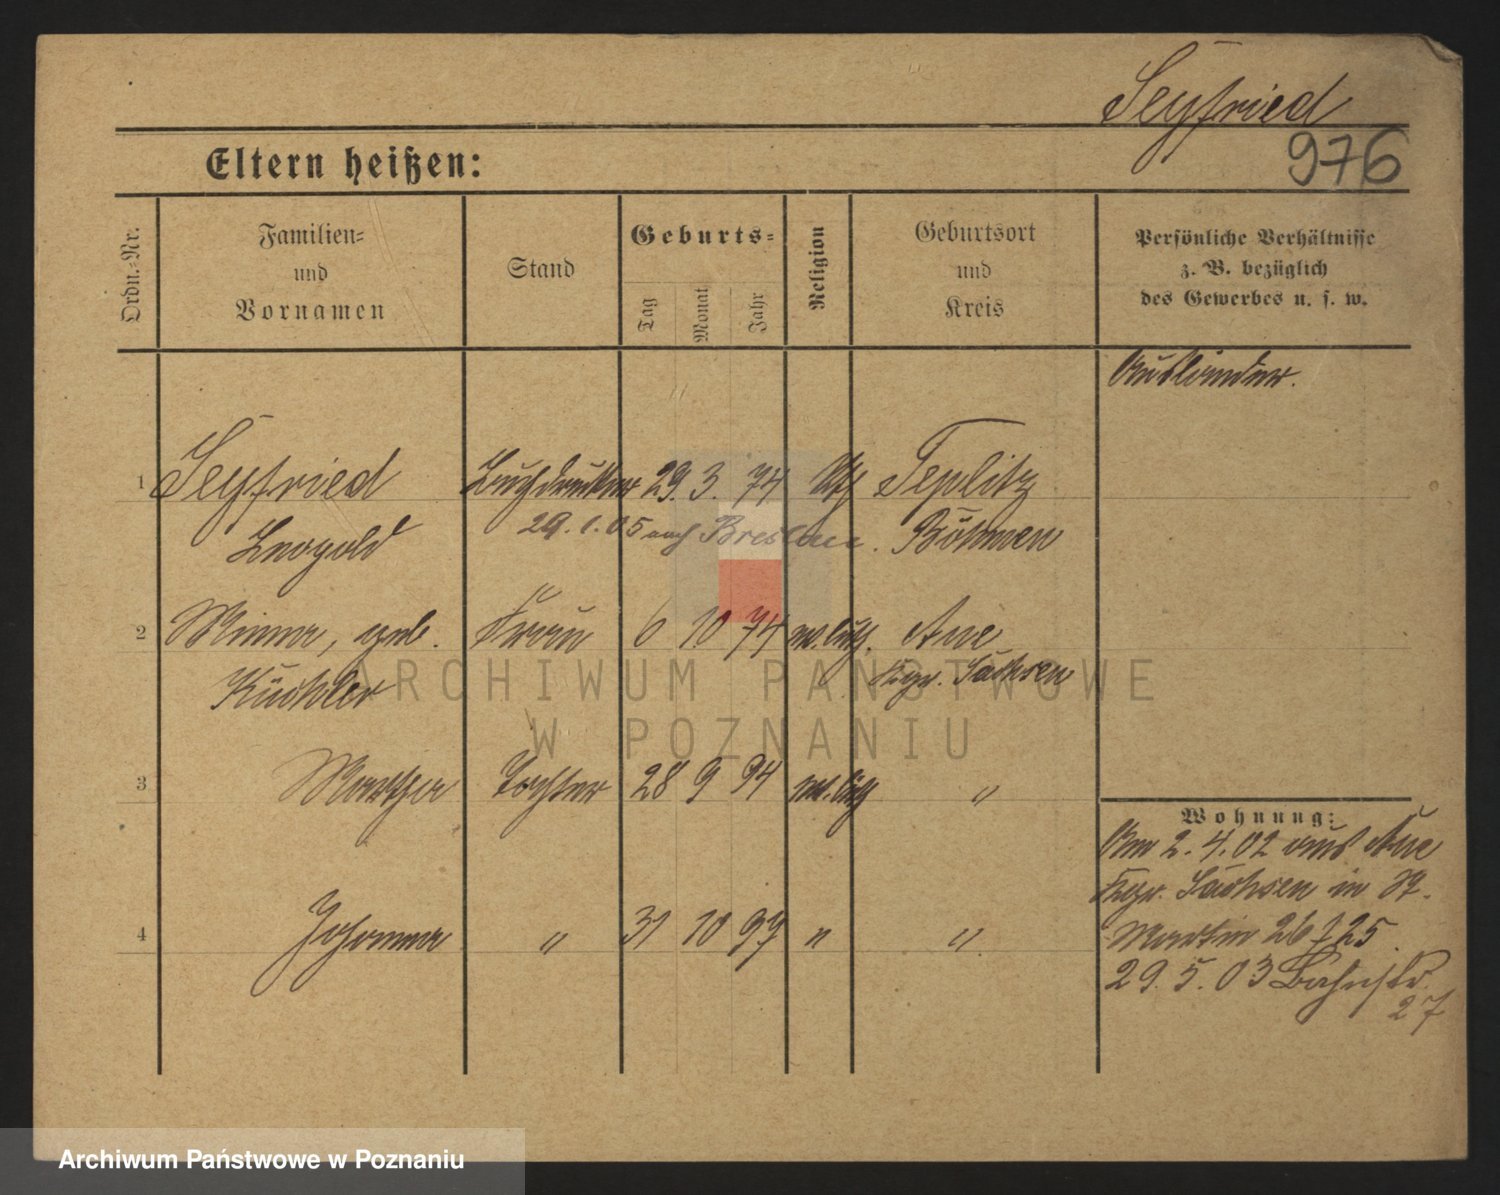 Seyfried
976
Eltern heißen:
Ordn.-Nr.
Familien-
und
Vornamen
Stand
Geburts-
Tag
Monat
Jahr
Religion
Geburtsort
und
Kreis
Persönliche Verhältnisse
z. B. bezüglich
des Gewerbes u. s. w.
Ausländer.
1 Seyfried Buchdrucker 29. 3. 74 Teplitz
Leopold 29.1.05 nach Breslau. Böhmen
2 Minna, geb. Frau 6 10 74 ev. luth. Aue
Küchler Kgr. Sachsen
3 Martha Tochter 28 9 94 ev. luth "
4 Johanna " 31 10 97 " "
Wohnung:
Am 2.4.02 aus Aue
Kgr. Sachsen in St.
Martin 26 25.
29.5.03 Bahnstr.
27
ARCHIWUM PAŃSTWOWE
W POZNANIU
Archiwum Państwowe w Poznaniu